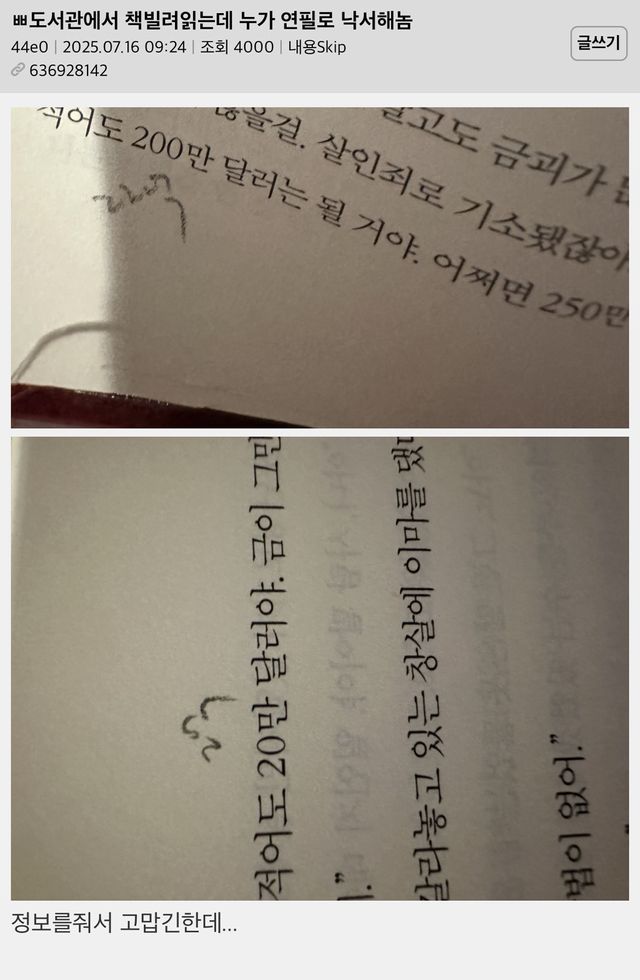 ㅃ도서관에서 책빌려읽는데 누가 연필로 낙서해놈
44e0 | 2025.07.16 09:24 | 조회 4000 | 내용Skip
636928142
글쓰기
금괴가
않을걸. 살인죄로 기소됐잖아
적어도 200만 달러는 될 거야. 어쩌면 250만
적어도 20만 달러야. 금이 그만
갈라놓고 있는 창살에 이마를 댔
법이 없어.”
정보를줘서 고맙긴한데...